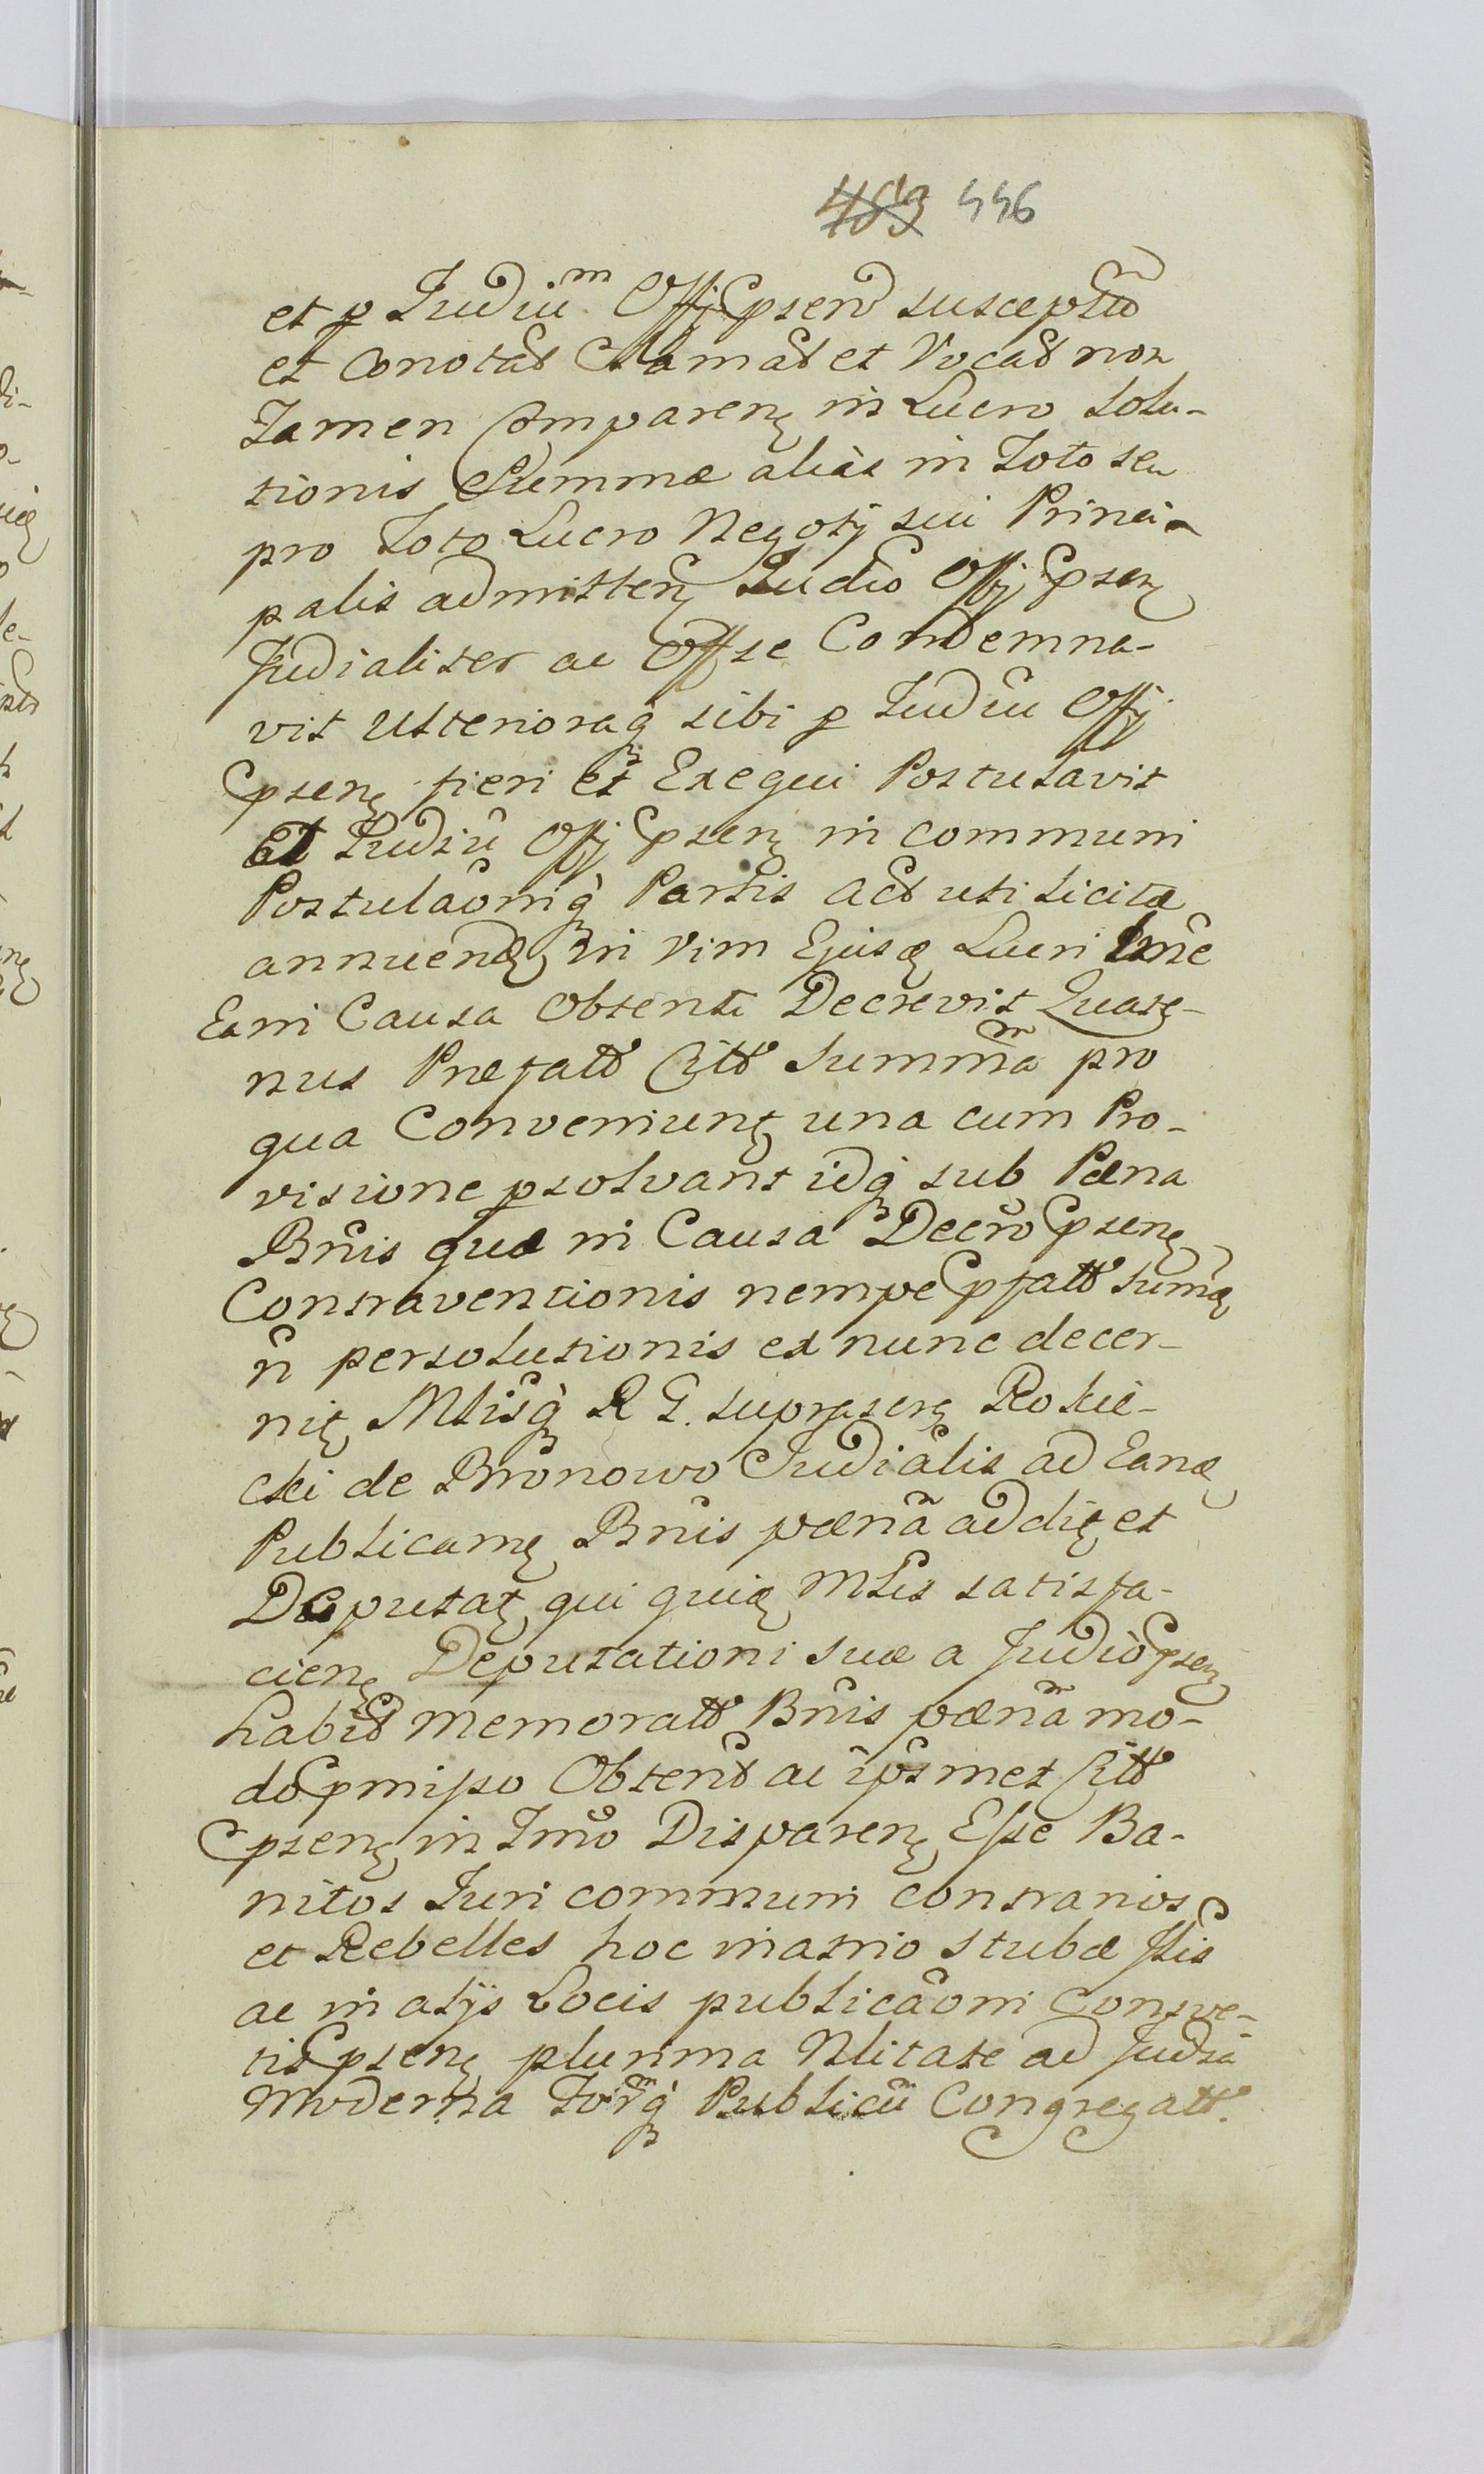 403 446
et p Judiũm Offj Epsens susceptũ
et Conotat Clamat et Vocat non
Tamen Comparenę in Lucro Solu-
tionis Summæ aliàs in Toto seu
pro Toto Lucro Negotj sui Princi-
palis admitten Judio Offj Epsen
Judialiter ac Offse Condemna-
vit Ulterioraq sibi p Judiũ Offj
Epsenę fieri et Exequi Postulavit
Et Judiũ Offj Epsenę in communi
Postulaõniq Partis Act uti licitæ
annuendę in Vim Ejusę Lucri
Eam Causa Obtenti Decrevit Quatę-
nus Præfatt Citt Summã pro
qua Conveniunt una cum Pro-
visione psolvant idq sub Pæna
Bnĩs quæ in Causa Decrõ Epsenę
Contraventionis nempe pfatt sumę
ñ persolutionis ex nunc decer-
nit Mlisq R G. suprascrę Rokic-
cki de Bronowo Judialis ad Eanę
Publicamę Bnis pænã addit et
Deputat qui quię Mlis satisfa-
cienę Deputationi suæ a Judiõ Epsenę
habit memoratt Bnis pænã mo-
do pmisso Obtent ac ips met Citt
Epsenę in Tmõ Disparenę Esse Ba-
nitos Juri communi contrarios
et Rebelles hoc in atrio stubæ Jlis
ac in alijs Locis publicaõni Consve-
tis Epsenę plurima Nlitate ad Judia
Moderna Forq Publicũ Congregatt.